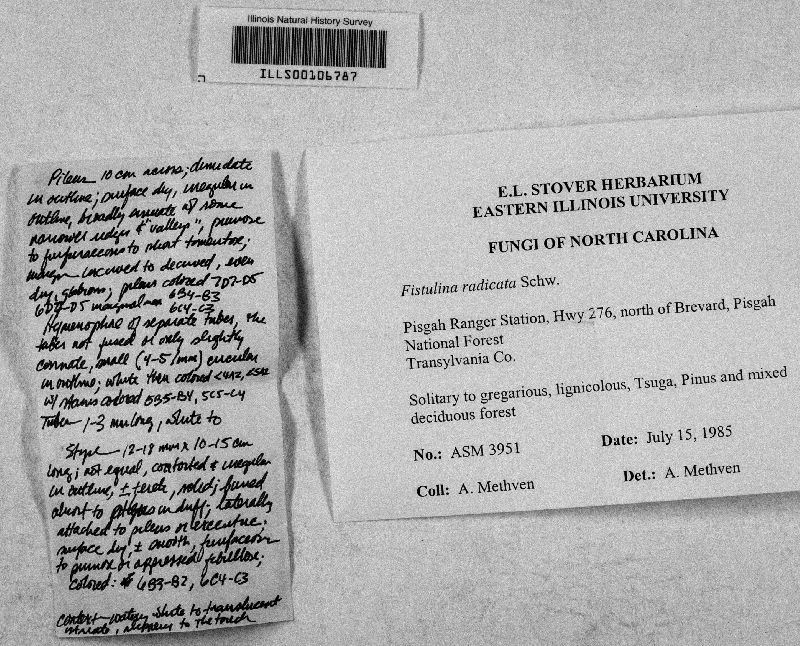 Illinois Natural History Survey
ILLS00106787
Pileus 10 cm across; dimidate
in outline; surface dry, irregular in
outline, broadly sinuate w/ some
narrower ridges & "valleys", pruinose
to furfuraceous to short tomentose;
margin incurved to decurved, even
dry, glabrous; pileus colored 7D7-D5
6D7-D5 marginal area 6B4-B3
6C4-C3
Hymenophore of separate tubes, the
tubes not fused or only slightly
connate, small (4-5/mm) circular
in outline; white then colored
w/ stains colored 5B5-B4, 5C5-C4
Tubes 1-3 mm long, white to
Stipe 12-18 mm x 10-15 cm
long; not equal, contorted & irregular
in outline, ± terete, solid; fused
almost to in duff; laterally
attached to pileus or excentric;
surface dry, ± smooth, furfuraceous
to pruinose or appressed fibrillose;
colored: 6B3-B2, 6C4-C3
Context watery white to translucent
to the touch
E.L. STOVER HERBARIUM
EASTERN ILLINOIS UNIVERSITY
FUNGI OF NORTH CAROLINA
Fistulina radicata Schw.
Pisgah Ranger Station, Hwy 276, north of Brevard, Pisgah
National Forest
Transylvania Co.
Solitary to gregarious, lignicolous, Tsuga, Pinus and mixed
deciduous forest
No.: ASM 3951 Date: July 15, 1985
Coll: A. Methven Det.: A. Methven